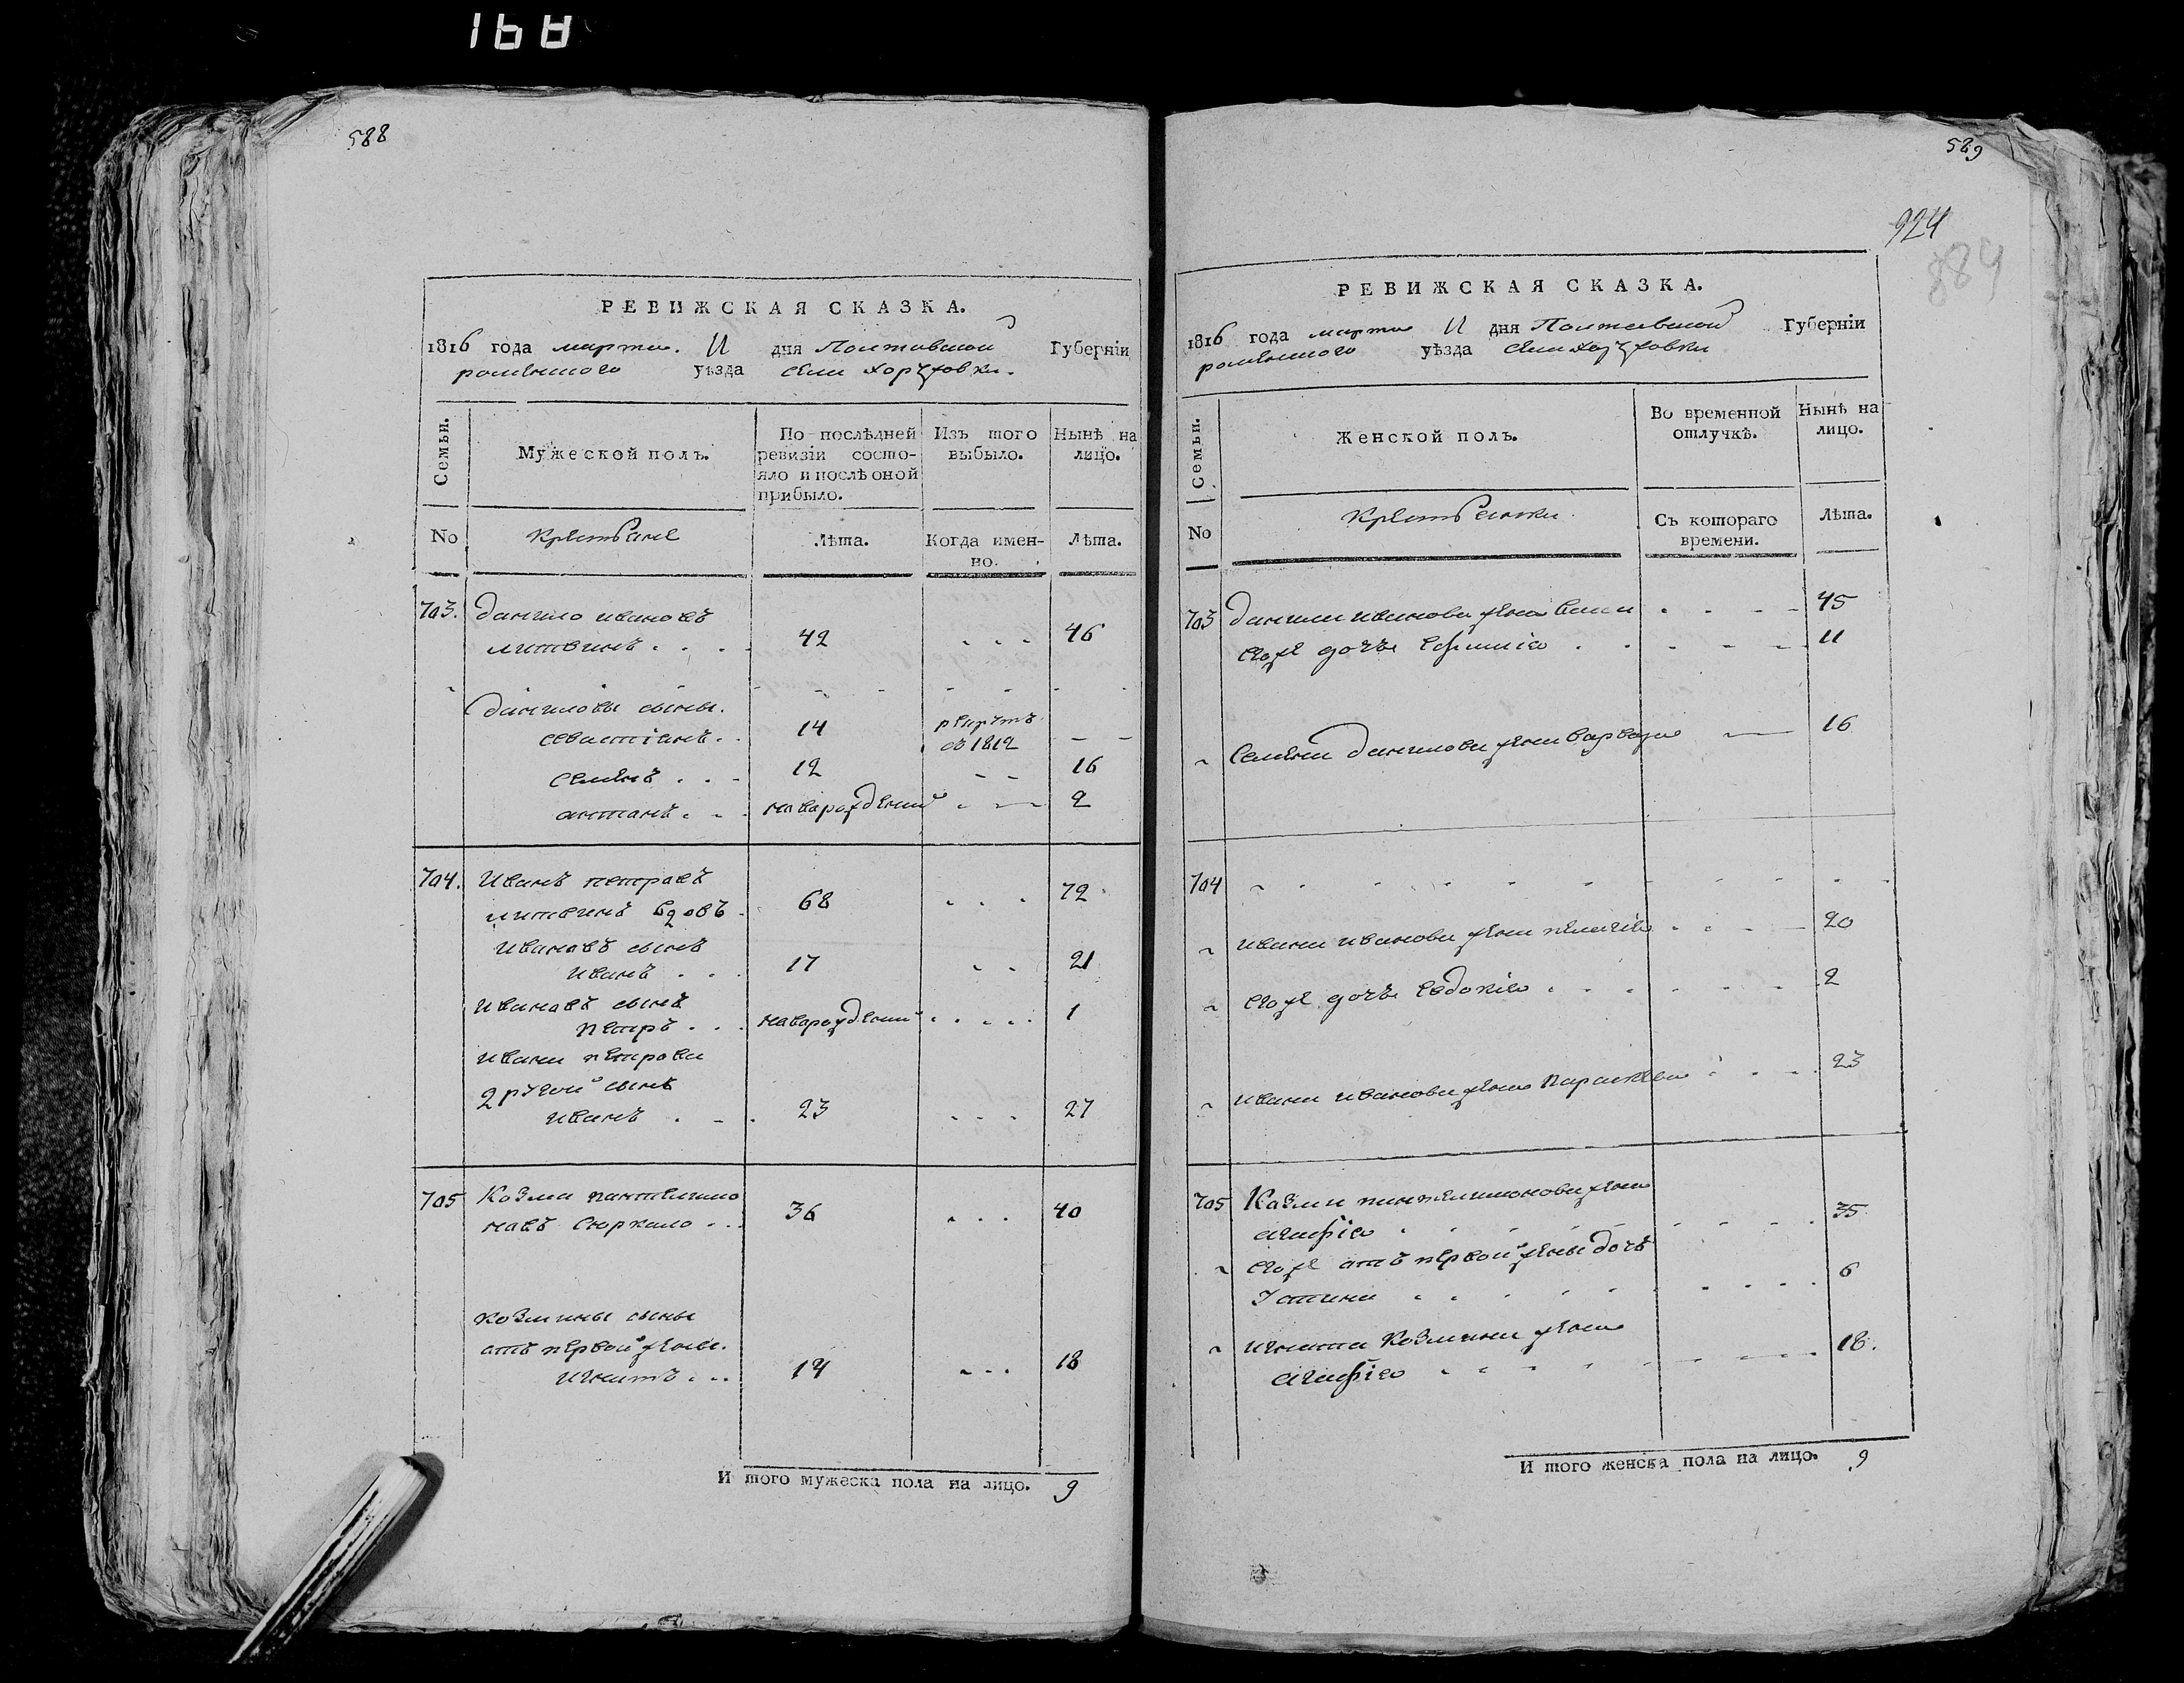 168
588
РЕВИЖСКАЯ СКАЗКА.
1816 года марта 11 дня Полтавской Губерніи
роменского уѣзда села Хоружовки.
Семьи.
Мужеской полъ.
По послѣдней ревизіи состояло и послѣ оной прибыло.
Изъ того выбыло.
Нынѣ на лицо.
No
Крестьяне
Лѣта.
Когда именно.
Лѣта.
703. Данило ивановъ
литвинъ . . . 42 . . . 46
Даниловы сыны.
севастіянъ . . 14 рекрутъ съ 1812 — —
семенъ . . - 12 - - 16
антонъ . - . новорожденый . — 2
704. Иванъ петровъ
литвинъ вдовъ . 68 . . . 72
ивановъ сынъ
иванъ . . . 17 . . 21
ивановъ сынъ
петръ . . . новорожденый . . . . . 1
ивана петрова
другой сынъ
иванъ . - . 23 . . . 27
705 Козма пантелимо
новъ Сюркало . . . 36 . . . 40
козмины сыны
отъ первой жены.
игнатъ . . . 14 - . . 18
И того мужеска пола на лицо. 9
589
924
884
РЕВИЖСКАЯ СКАЗКА.
1816 года марта 11 дня Полтавской Губерніи
роменского уѣзда села Хоружовки
Семьи.
Женской полъ.
Во временной отлучкѣ.
Нынѣ на лицо.
No
Крестьянки
Съ котораго времени.
Лѣта.
703 Данила иванова жена . - - - 45
егоже дочъ Ефимія . . - - - 11
Семена данилова жена варвара — 16
704
ивана иванова жена пелагія . . - — 20
егоже дочъ Евдокія . . . . . . 2
ивана иванова жена параскева . . . . 23
705 Козмы пантелимонова жена
агафія . . . . . . . . . 35
егоже отъ первой жены дочъ
Устина . . . . . . . . . 6
игната Козмина жена
агафія . . . . . . — . 18.
И того женска пола на лицо. 9